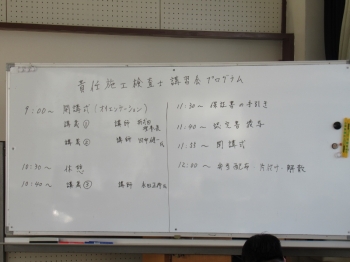 責任施工検査士講習会プログラム
9:00〜 開講式(オリエンテーション)
講義① 講師
講義② 講師
10:30〜 休憩
10:40〜 講義③ 講師
11:30〜 保証書の手引き
11:40〜 認定書授与
11:55〜 閉講式
12:00〜 弁当配布・片付け・解散